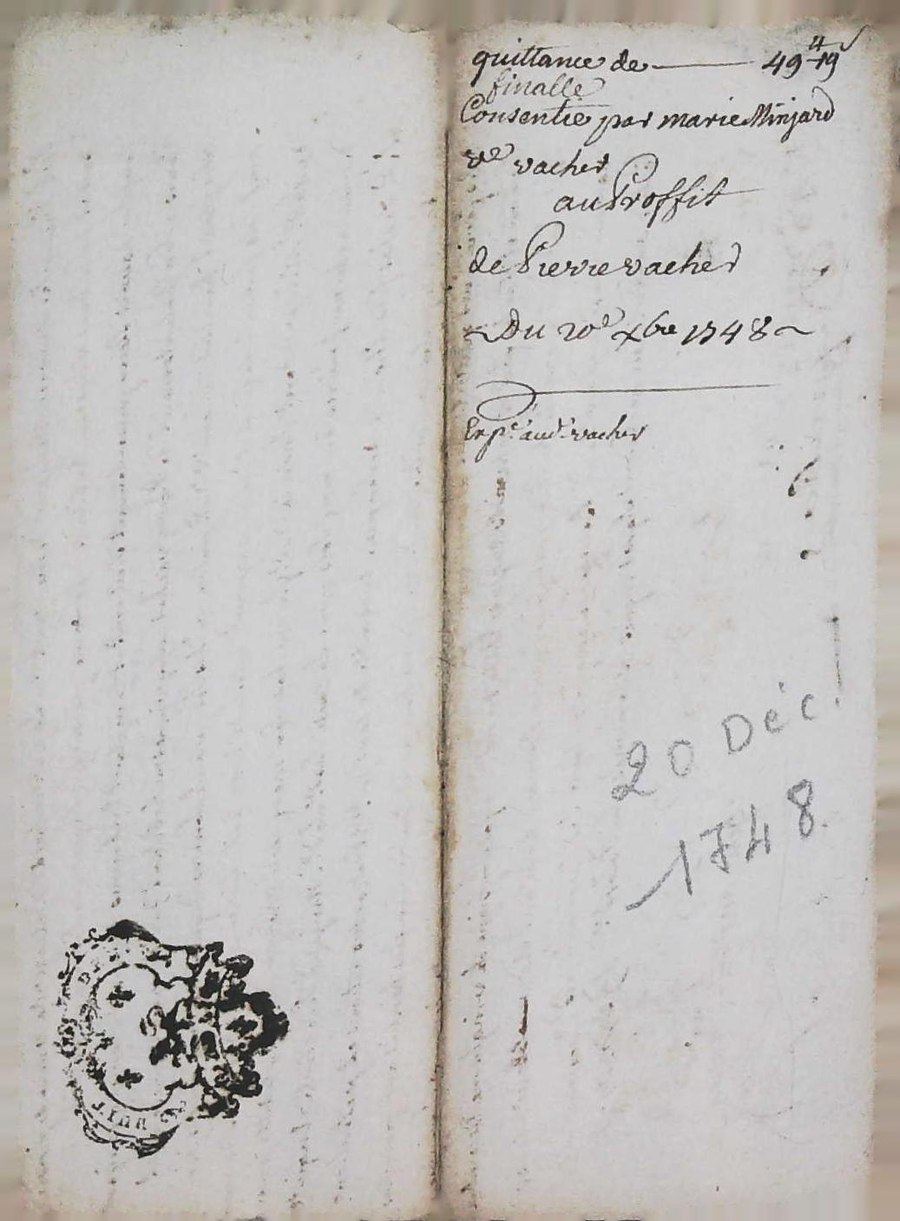 quittance de 49ᵗᵗ 19ˢ
finalle
Consentie par marie Minjard
vᵉ vacher
au Proffit
de Pierre vacher
Du 20ᵉ xbre 1748
Exp.ᵉ aud.ᵗ vacher
20 Déc.
1748.
HUIT